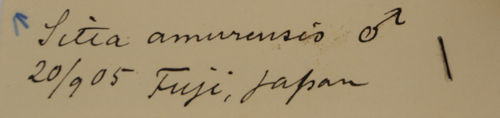 Sitta amurensis ♂
20/9 05 Fuji, Japan